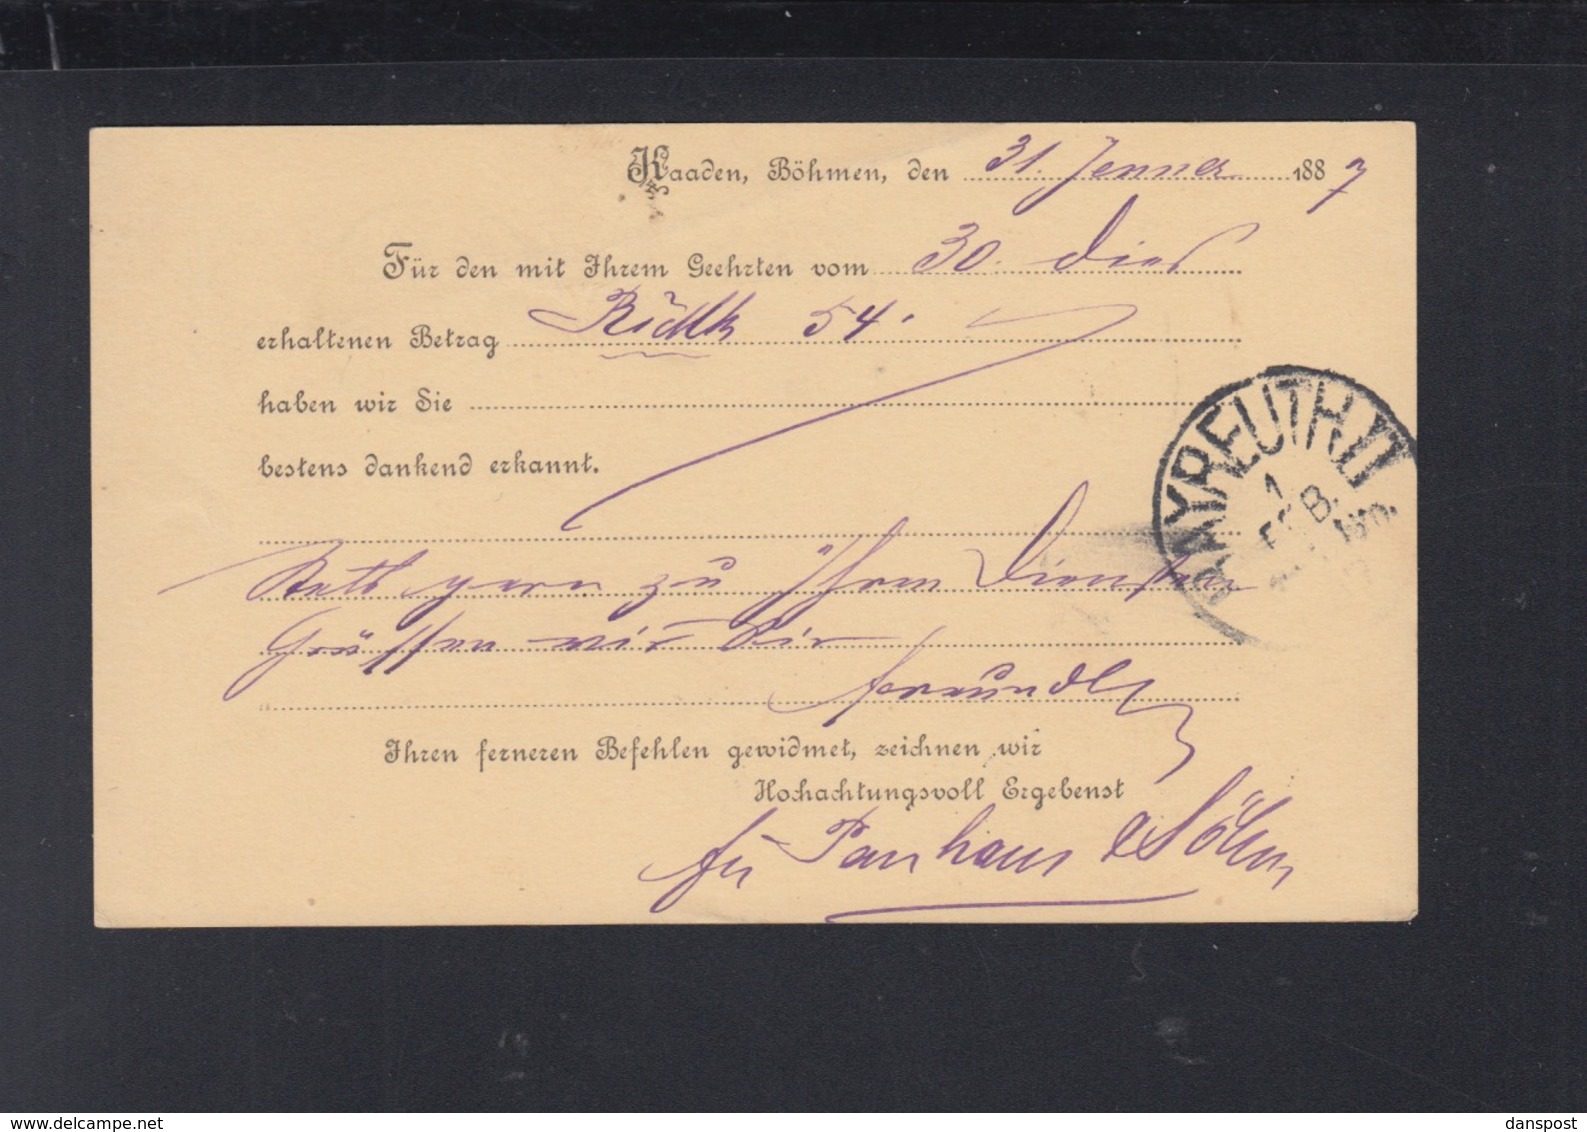 Kaaden, Böhmen, den 31. Jenner 1887
Für den mit Ihrem Geehrten vom 30. dies
erhaltenen Betrag 54.
haben wir Sie
bestens dankend erkannt.
Stets gern zu Ihren Diensten
Grüssen wir Sie
freundl
Ihren ferneren Befehlen gewidmet, zeichnen wir
Hochachtungsvoll Ergebenst
Panhans & Söhne
BAYREUTH II
1
FEB.
delcampe.net
danspost